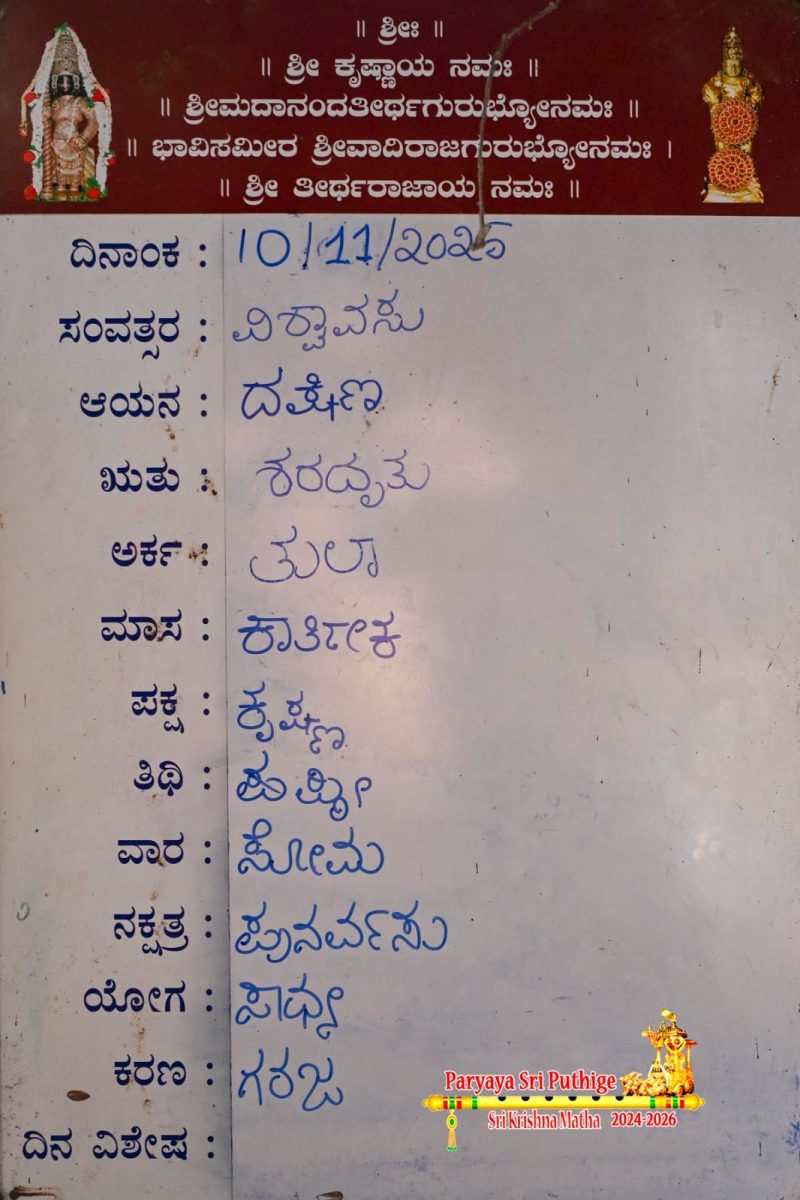 ॥ ಶ್ರೀಃ ॥
॥ ಶ್ರೀ ಕೃಷ್ಣಾಯ ನಮಃ ॥
॥ ಶ್ರೀಮದಾನಂದತೀರ್ಥಗುರುಭ್ಯೋನಮಃ ॥
॥ ಭಾವಿಸಮೀರ ಶ್ರೀವಾದಿರಾಜಗುರುಭ್ಯೋನಮಃ ।
॥ ಶ್ರೀ ತೀರ್ಥರಾಜಾಯ ನಮಃ ॥
ದಿನಾಂಕ : 10/11/೨೦೩೫
ಸಂವತ್ಸರ : ವಿಶ್ವಾವಸು
ಆಯನ : ದಕ್ಷಿಣ
ಋತು : ಶರದೃತು
ಅರ್ಕ : ತುಲಾ
ಮಾಸ : ಕಾರ್ತೀಕ
ಪಕ್ಷ : ಕೃಷ್ಣ
ತಿಥಿ :
ವಾರ : ಸೋಮ
ನಕ್ಷತ್ರ : ಪುನರ್ವಸು
ಯೋಗ : ಸಾಧ್ಯ
ಕರಣ : ಗರಜ
ದಿನ ವಿಶೇಷ :
Paryaya Sri Puthige
Sri Krishna Matha 2024-2026